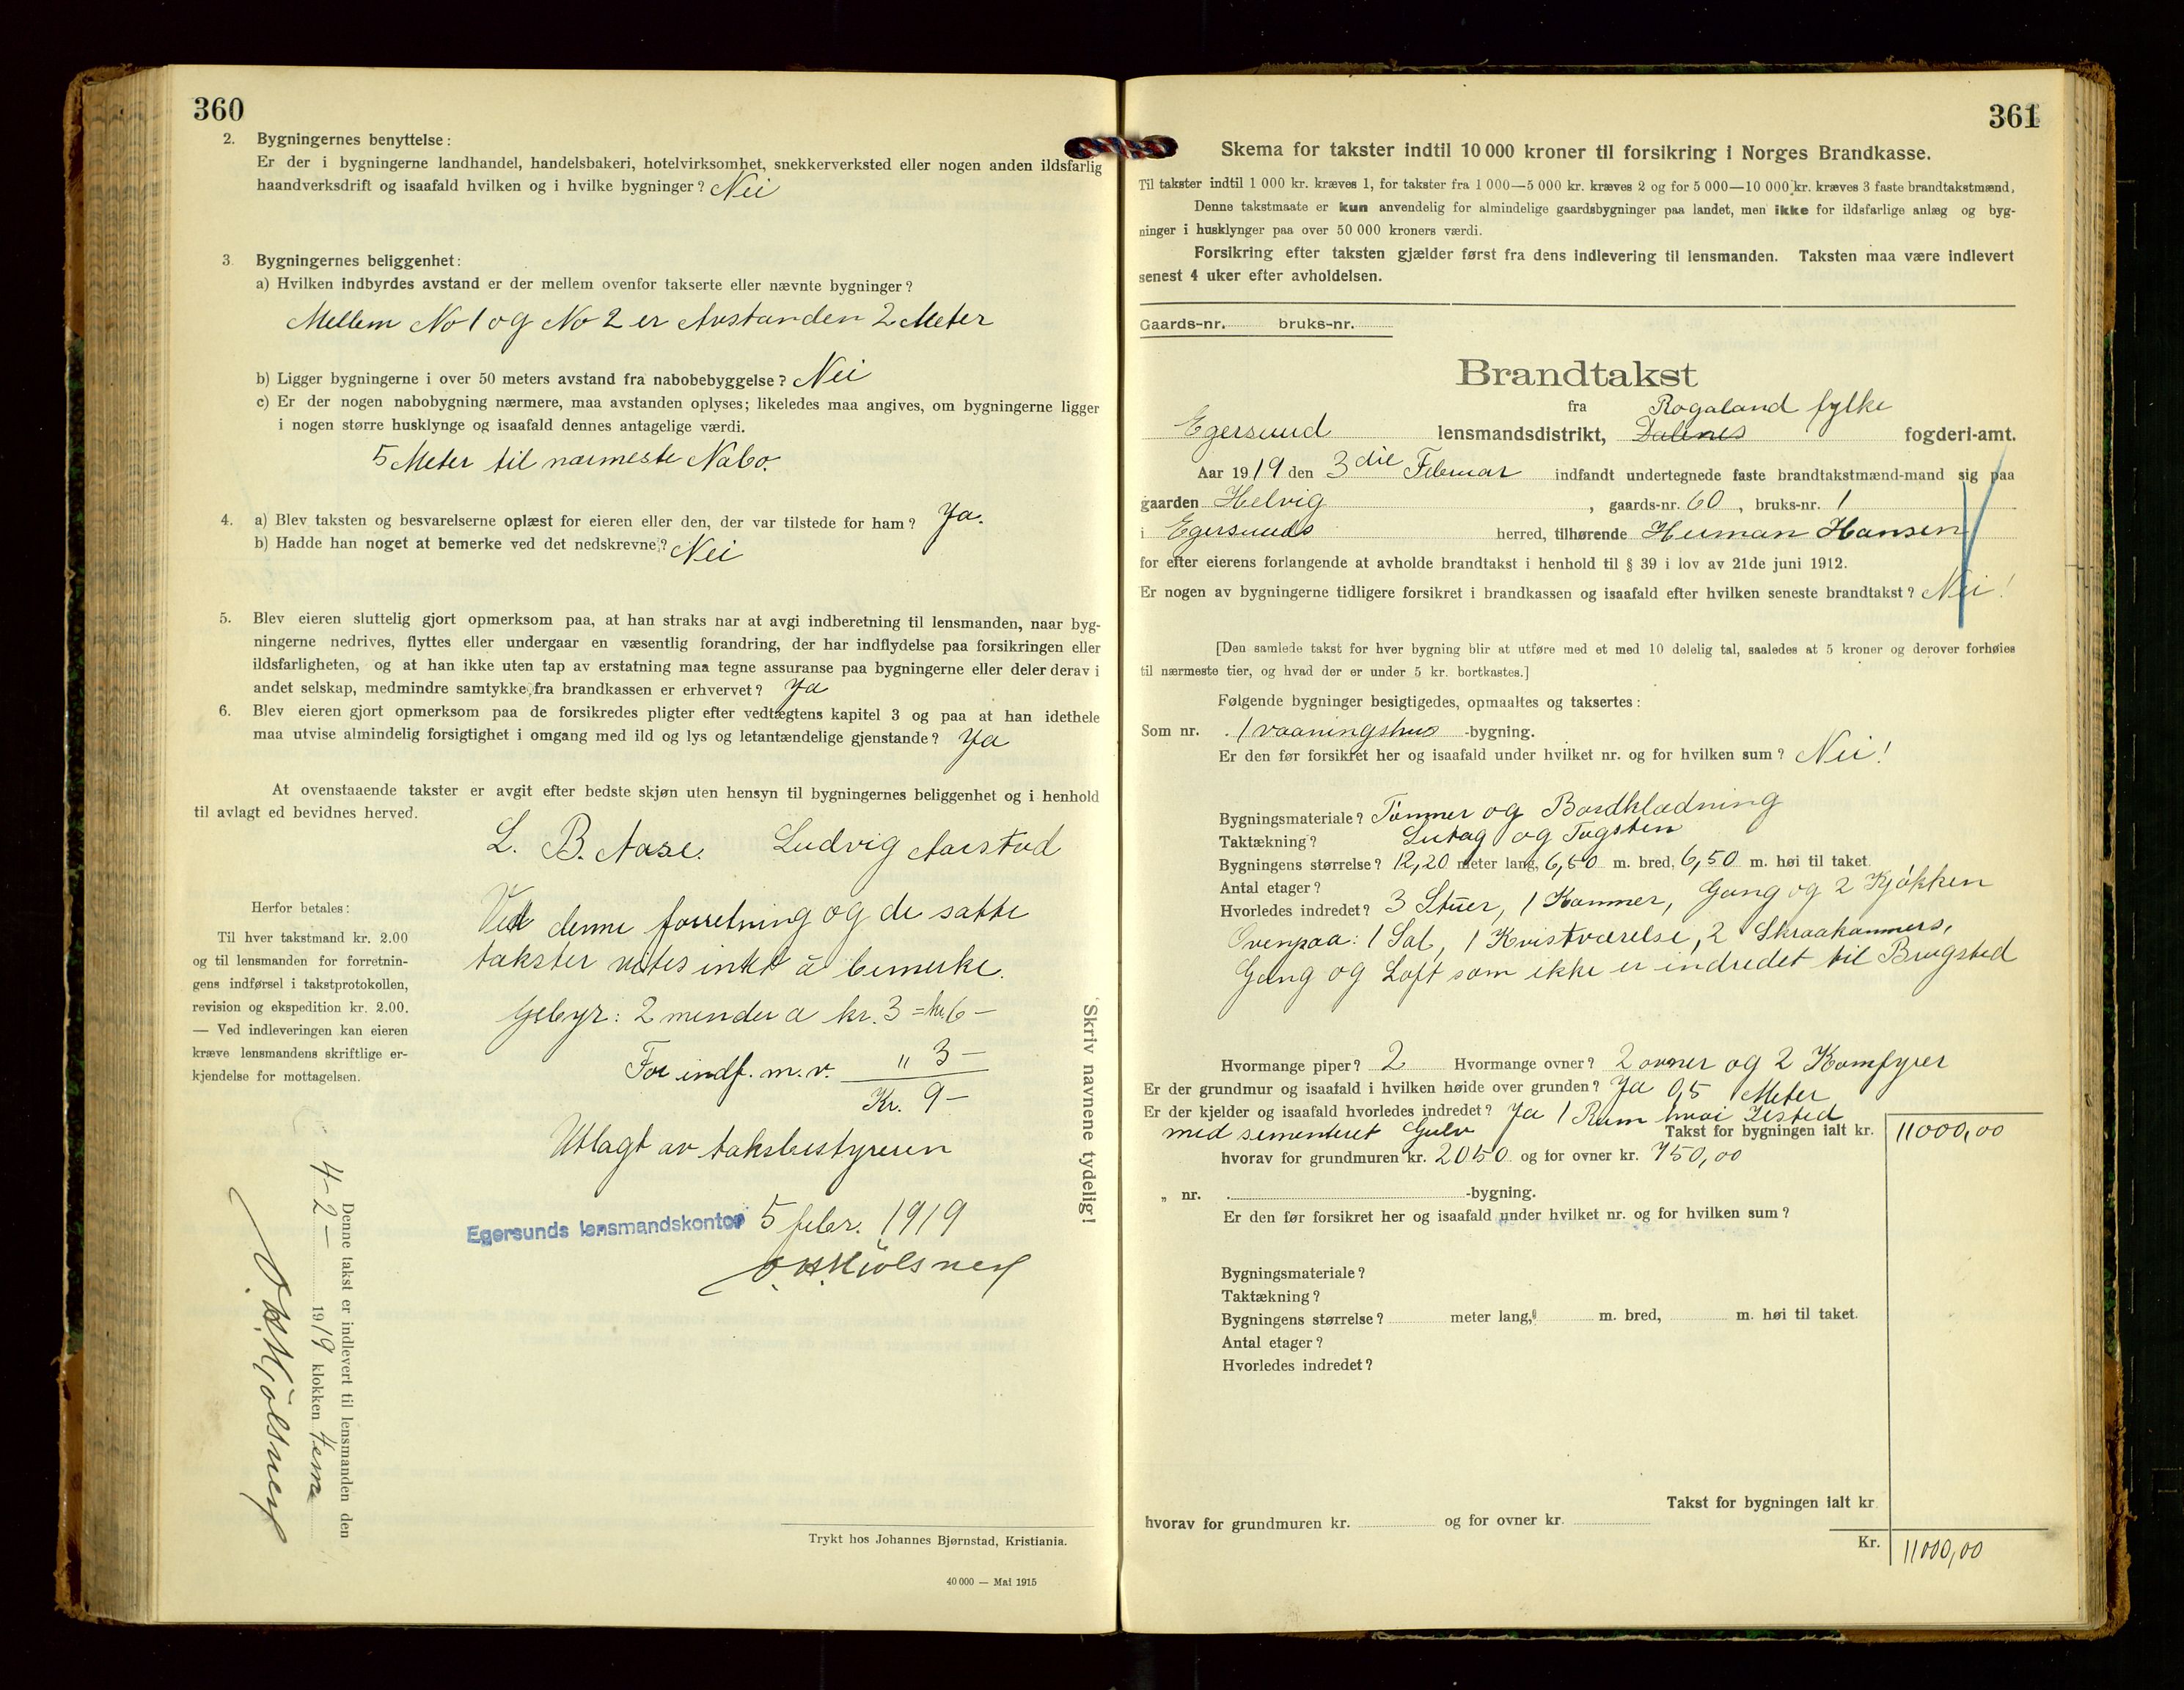 360
2. Bygningernes benyttelse:
Er der i bygningerne landhandel, handelsbakeri, hotelvirksomhet, snekkerverksted eller nogen anden ildsfarlig
haandverksdrift og isaafald hvilken og i hvilke bygninger? Nei
3. Bygningernes beliggenhet:
a) Hvilken indbyrdes avstand er der mellem ovenfor takserte eller nævnte bygninger?
Mellem No 1 og No 2 er Avstanden 2 Meter
b) Ligger bygningerne i over 50 meters avstand fra nabobebyggelse? Nei
c) Er der nogen nabobygning nærmere, maa avstanden oplyses; likeledes maa angives, om bygningerne ligger
i nogen større husklynge og isaafald dennes antagelige værdi.
5 Meter til nærmeste Nabo.
4. a) Blev taksten og besvarelserne oplæst for eieren eller den, der var tilstede for ham? Ja.
b) Hadde han noget at bemerke ved det nedskrevne? Nei
5. Blev eieren sluttelig gjort opmerksom paa, at han straks har at avgi indberetning til lensmanden, naar byg-
ningerne nedrives, flyttes eller undergaar en væsentlig forandring, der har indflydelse paa forsikringen eller
ildsfarligheten, og at han ikke uten tap av erstatning maa tegne assuranse paa bygningerne eller deler derav i
andet selskap, medmindre samtykke fra brandkassen er erhvervet? Ja
6. Blev eieren gjort opmerksom paa de forsikredes pligter efter vedtægtens kapitel 3 og paa at han idethele
maa utvise almindelig forsigtighet i omgang med ild og lys og letantændelige gjenstande? Ja
At ovenstaaende takster er avgit efter bedste skjøn uten hensyn til bygningernes beliggenhet og i henhold
til avlagt ed bevidnes herved.
L. B. Aase. Ludvig Aarstad
Herfor betales:
Til hver takstmand kr. 2.00
og til lensmanden for forretnin-
gens indførsel i takstprotokollen,
revision og ekspedition kr. 2.00.
— Ved indleveringen kan eieren
kræve lensmandens skriftlige er-
kjendelse for mottagelsen.
Ved denne forretning og de satte
takster vites intet å bemerke.
Gebyr: 2 mender a kr. 3 = kr. 6 —
For indf. m. v. " 3 —
Kr. 9 —
Utlagt av takstbestyreren
Egersunds lensmandskontor 5 febr. 1919
Skriv navnene tydelig!
Denne takst er indlevert til lensmanden den
4 - 2 — 1919 klokken 4 em
Trykt hos Johannes Bjørnstad, Kristiania.
40 000 — Mai 1915
361
Skema for takster indtil 10 000 kroner til forsikring i Norges Brandkasse.
Til takster indtil 1 000 kr. kræves 1, for takster fra 1 000—5 000 kr. kræves 2 og for 5 000—10 000 kr. kræves 3 faste brandtakstmænd.
Denne takstmaate er kun anvendelig for almindelige gaardsbygninger paa landet, men ikke for ildsfarlige anlæg og byg-
ninger i husklynger paa over 50 000 kroners værdi.
Forsikring efter taksten gjælder først fra dens indlevering til lensmanden. Taksten maa være indlevert
senest 4 uker efter avholdelsen.
Gaards-nr. bruks-nr.
Brandtakst
fra Rogaland fylke
Egersund lensmandsdistrikt, Dalenes fogderi-amt.
Aar 1919 den 3die Februar indfandt undertegnede faste brandtakstmænd-mand sig paa
gaarden Helvig, gaards-nr. 60, bruks-nr. 1
i Egersunds herred, tilhørende Herman Hansen
for efter eierens forlangende at avholde brandtakst i henhold til § 39 i lov av 21de juni 1912.
Er nogen av bygningerne tidligere forsikret i brandkassen og isaafald efter hvilken seneste brandtakst? Nei!
[Den samlede takst for hver bygning blir at utføre med et med 10 delelig tal, saaledes at 5 kroner og derover forhøies
til nærmeste tier, og hvad der er under 5 kr. bortkastes.]
Følgende bygninger besigtigedes, opmaaltes og taksertes:
Som nr. 1 vaaningshus -bygning.
Er den før forsikret her og isaafald under hvilket nr. og for hvilken sum? Nei!
Bygningsmateriale? Tømmer og Bordklædning
Taktækning? Lutag og Tagsten
Bygningens størrelse? 12,20 meter lang, 6,50 m. bred, 6,50 m. høi til taket.
Antal etager?
Hvorledes indredet? 3 Stuer, 1 Kammer, Gang og 2 Kjøkken
Ovenpaa: 1 Sal, 1 Kvistværelse, 2 Skraakammers,
Gang og Loft som ikke er indredet til Brugsted
Hvormange piper? 2 Hvormange ovner? 2 ovner og 2 Komfyrer
Er der grundmur og isaafald i hvilken høide over grunden? Ja 0,5 Meter
Er der kjelder og isaafald hvorledes indredet? Ja 1 Rum hvoi Ildsted
med sementeret Gulv Takst for bygningen ialt kr. 11000,00
hvorav for grundmuren kr. 2050 og for ovner kr. 750,00
„ nr. -bygning.
Er den før forsikret her og isaafald under hvilket nr. og for hvilken sum?
Bygningsmateriale?
Taktækning?
Bygningens størrelse? meter lang, m. bred, m. høi til taket.
Antal etager?
Hvorledes indredet?
Takst for bygningen ialt kr.
hvorav for grundmuren kr. og for ovner kr.
Kr. 11000,00